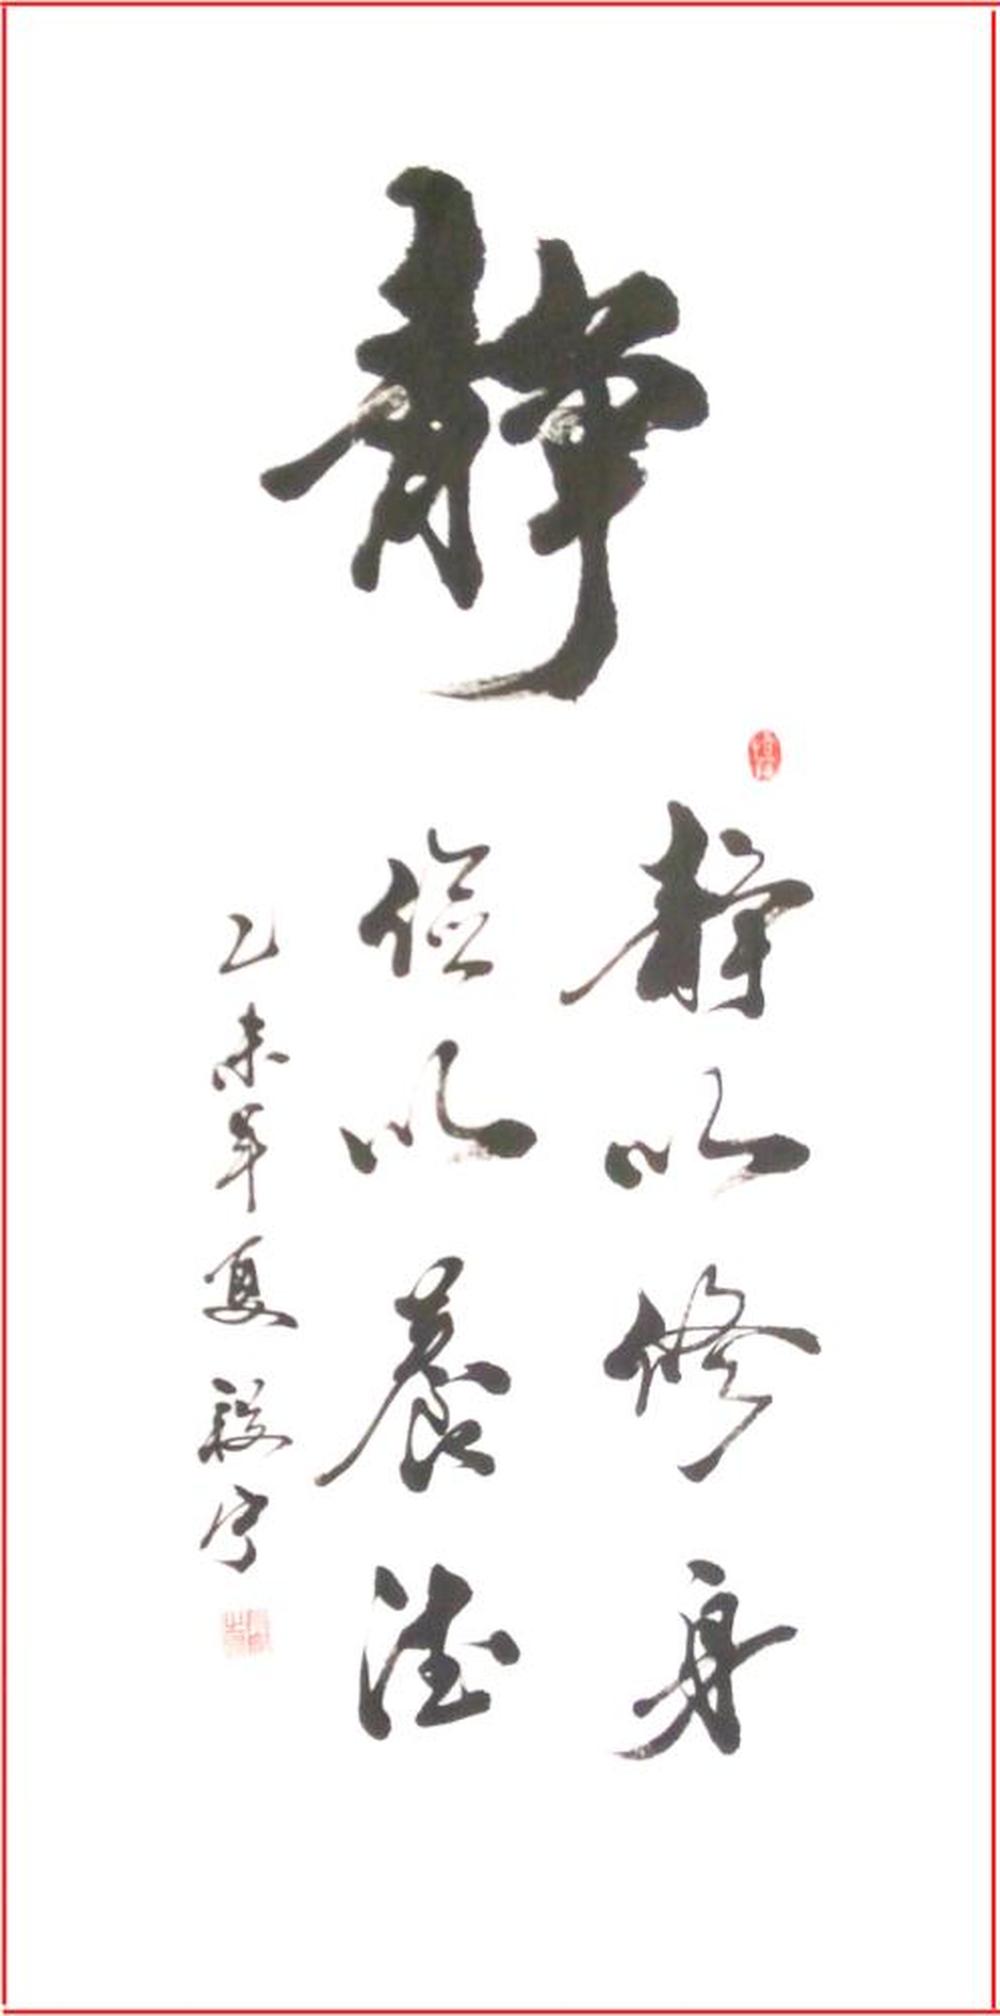 静
静以修身
俭以养德
乙未年夏 毅宁